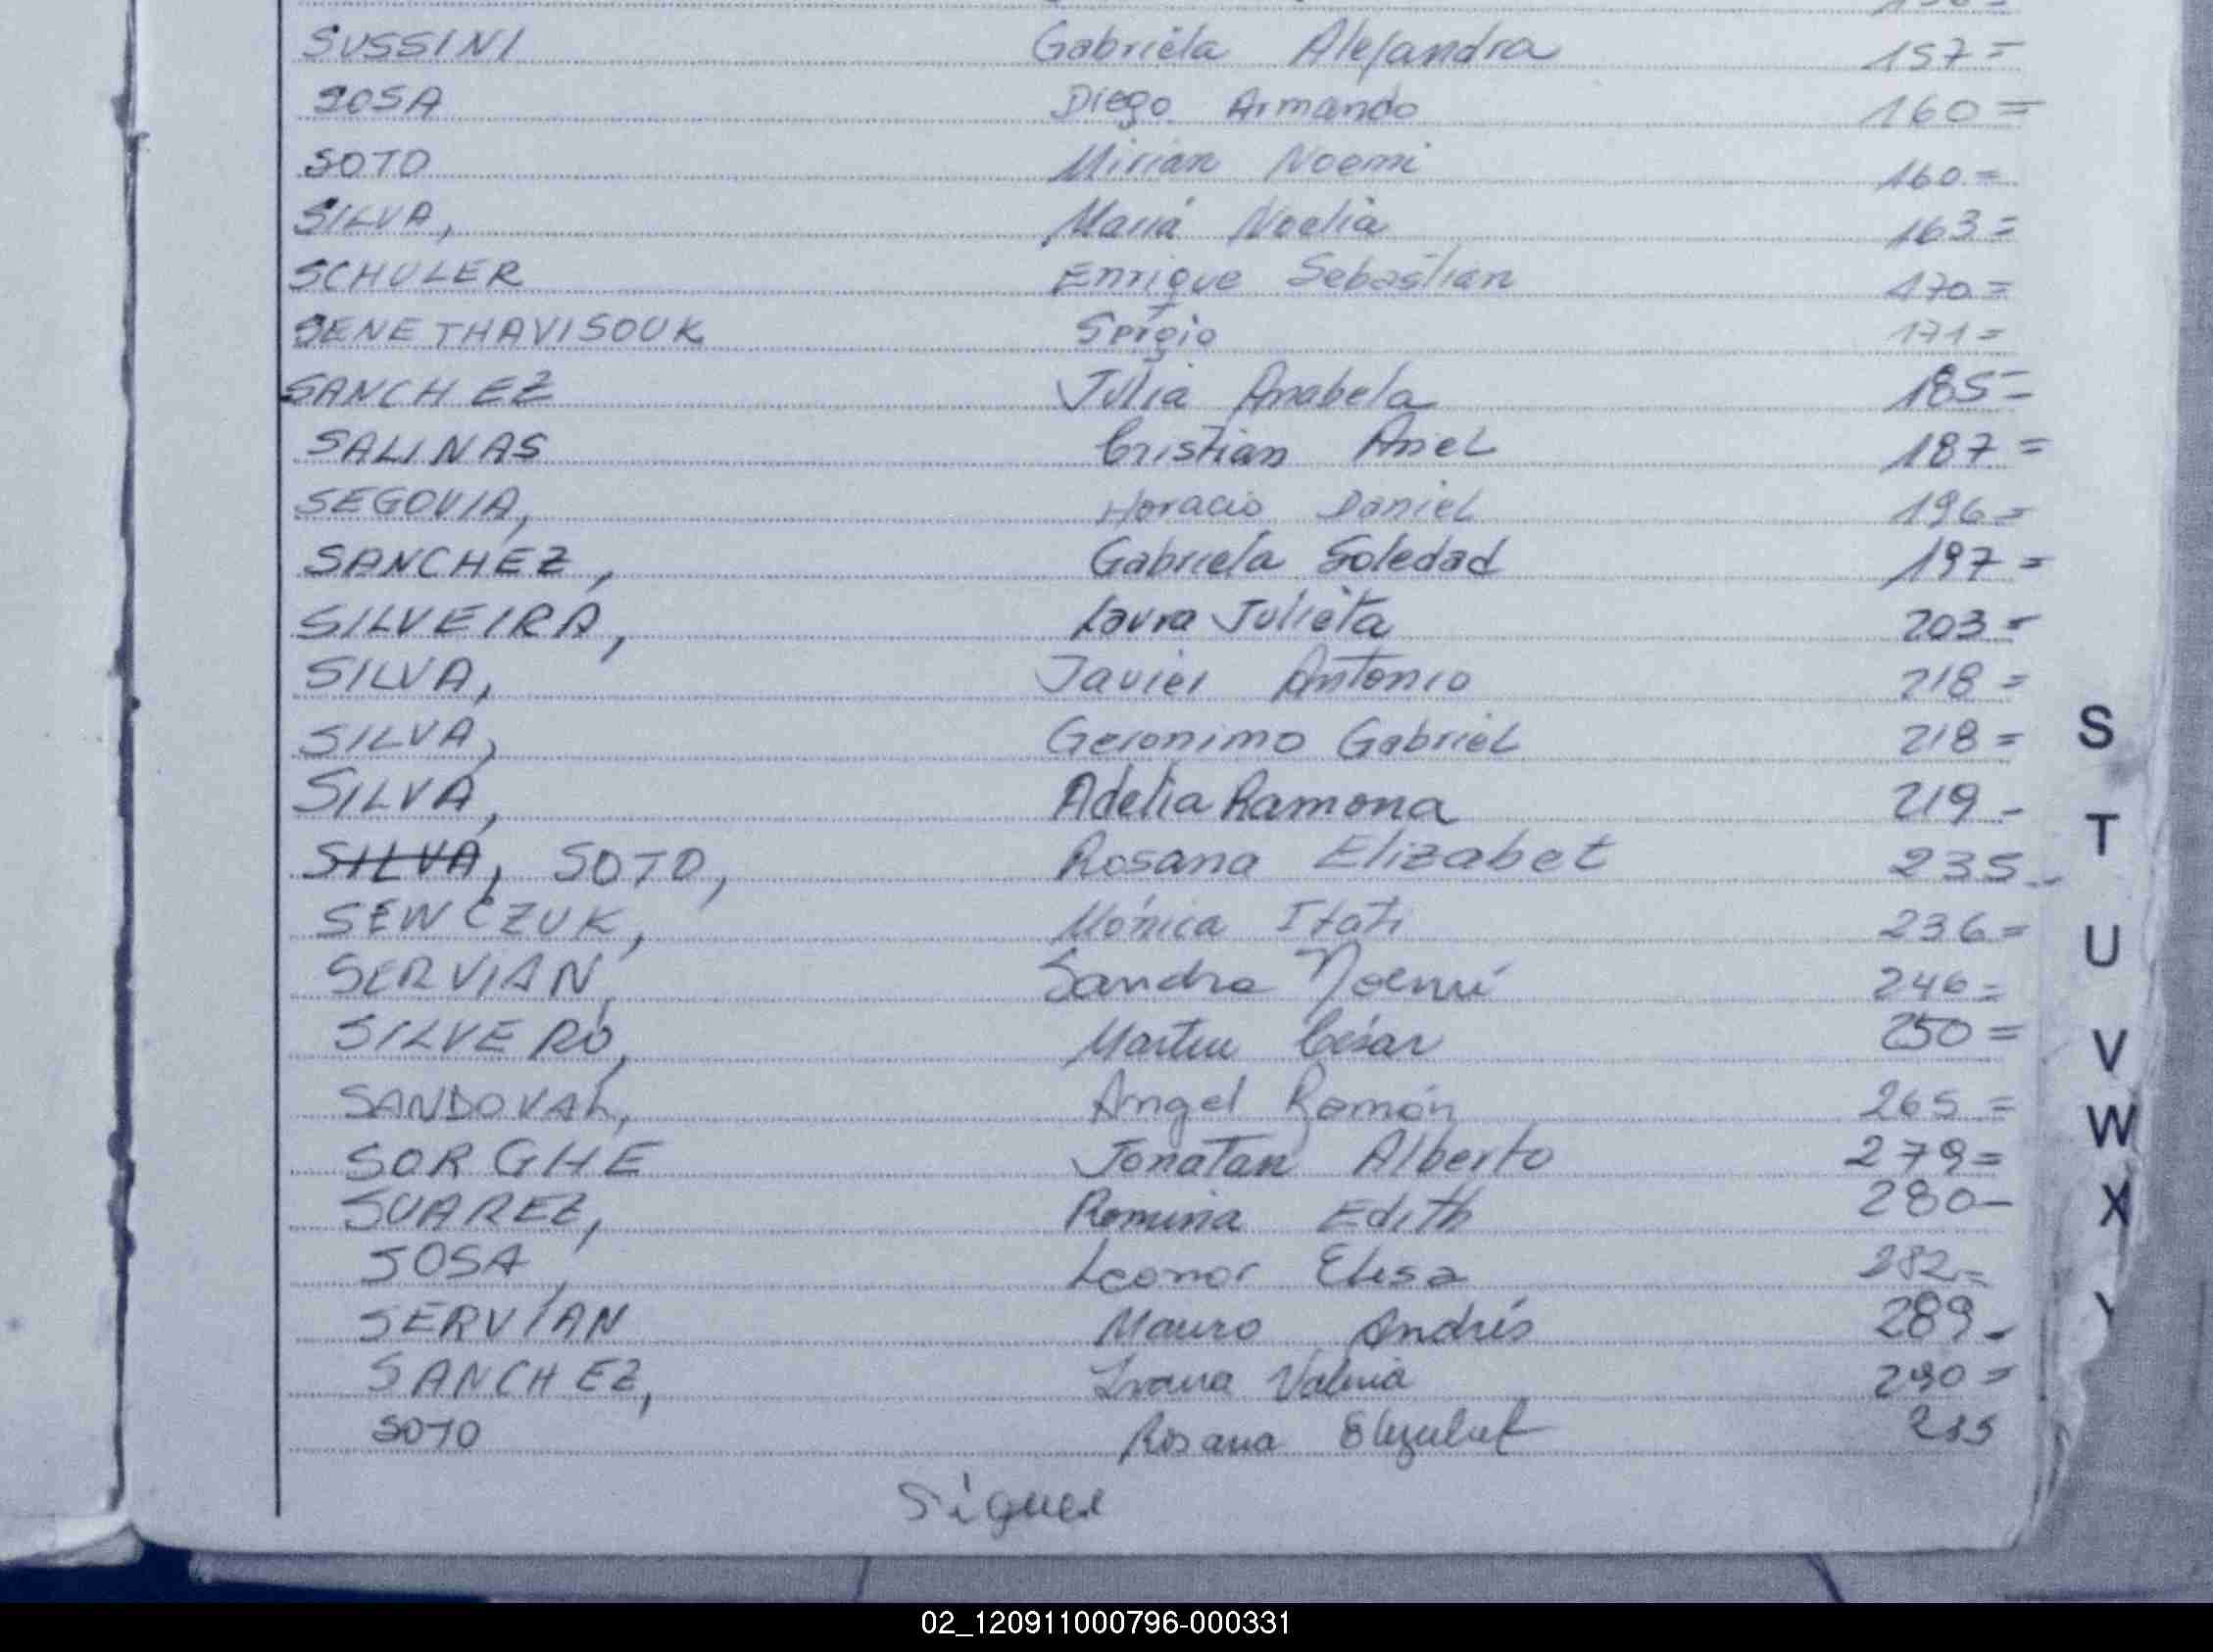 SUSSINI Gabriela Alejandra 157=
SOSA Diego Armando 160=
SOTO Mirian Noemi 160=
SILVA, María Noelia 163=
SCHULER Enrique Sebastian 170=
SENETHAVISOUK Sergio 171=
SANCHEZ Julia Anabela 185=
SALINAS Cristian Ariel 187=
SEGOVIA, Horacio Daniel 196=
SANCHEZ, Gabriela Soledad 197=
SILVEIRA, Laura Julieta 203=
SILVA, Javier Antonio 218=
SILVA, Geronimo Gabriel 218=
SILVA, Adelia Ramona 219-
SILVA, SOTO, Rosana Elizabet 235-
SEWCZUK, Mónica Itati 236=
SERVIAN, Sandra Noemí 246=
SILVERO, Martin César 250=
SANDOVAL, Angel Ramón 265=
SORGHE Jonatan Alberto 279=
SUAREZ, Romina Edith 280-
SOSA, Leonor Elisa 282=
SERVIAN Mauro Andrés 289-
SANCHEZ, Ivana Valeria 290=
SOTO Rosana Elizabet
S
T
U
V
W
X
Y
02_120911000796-000331